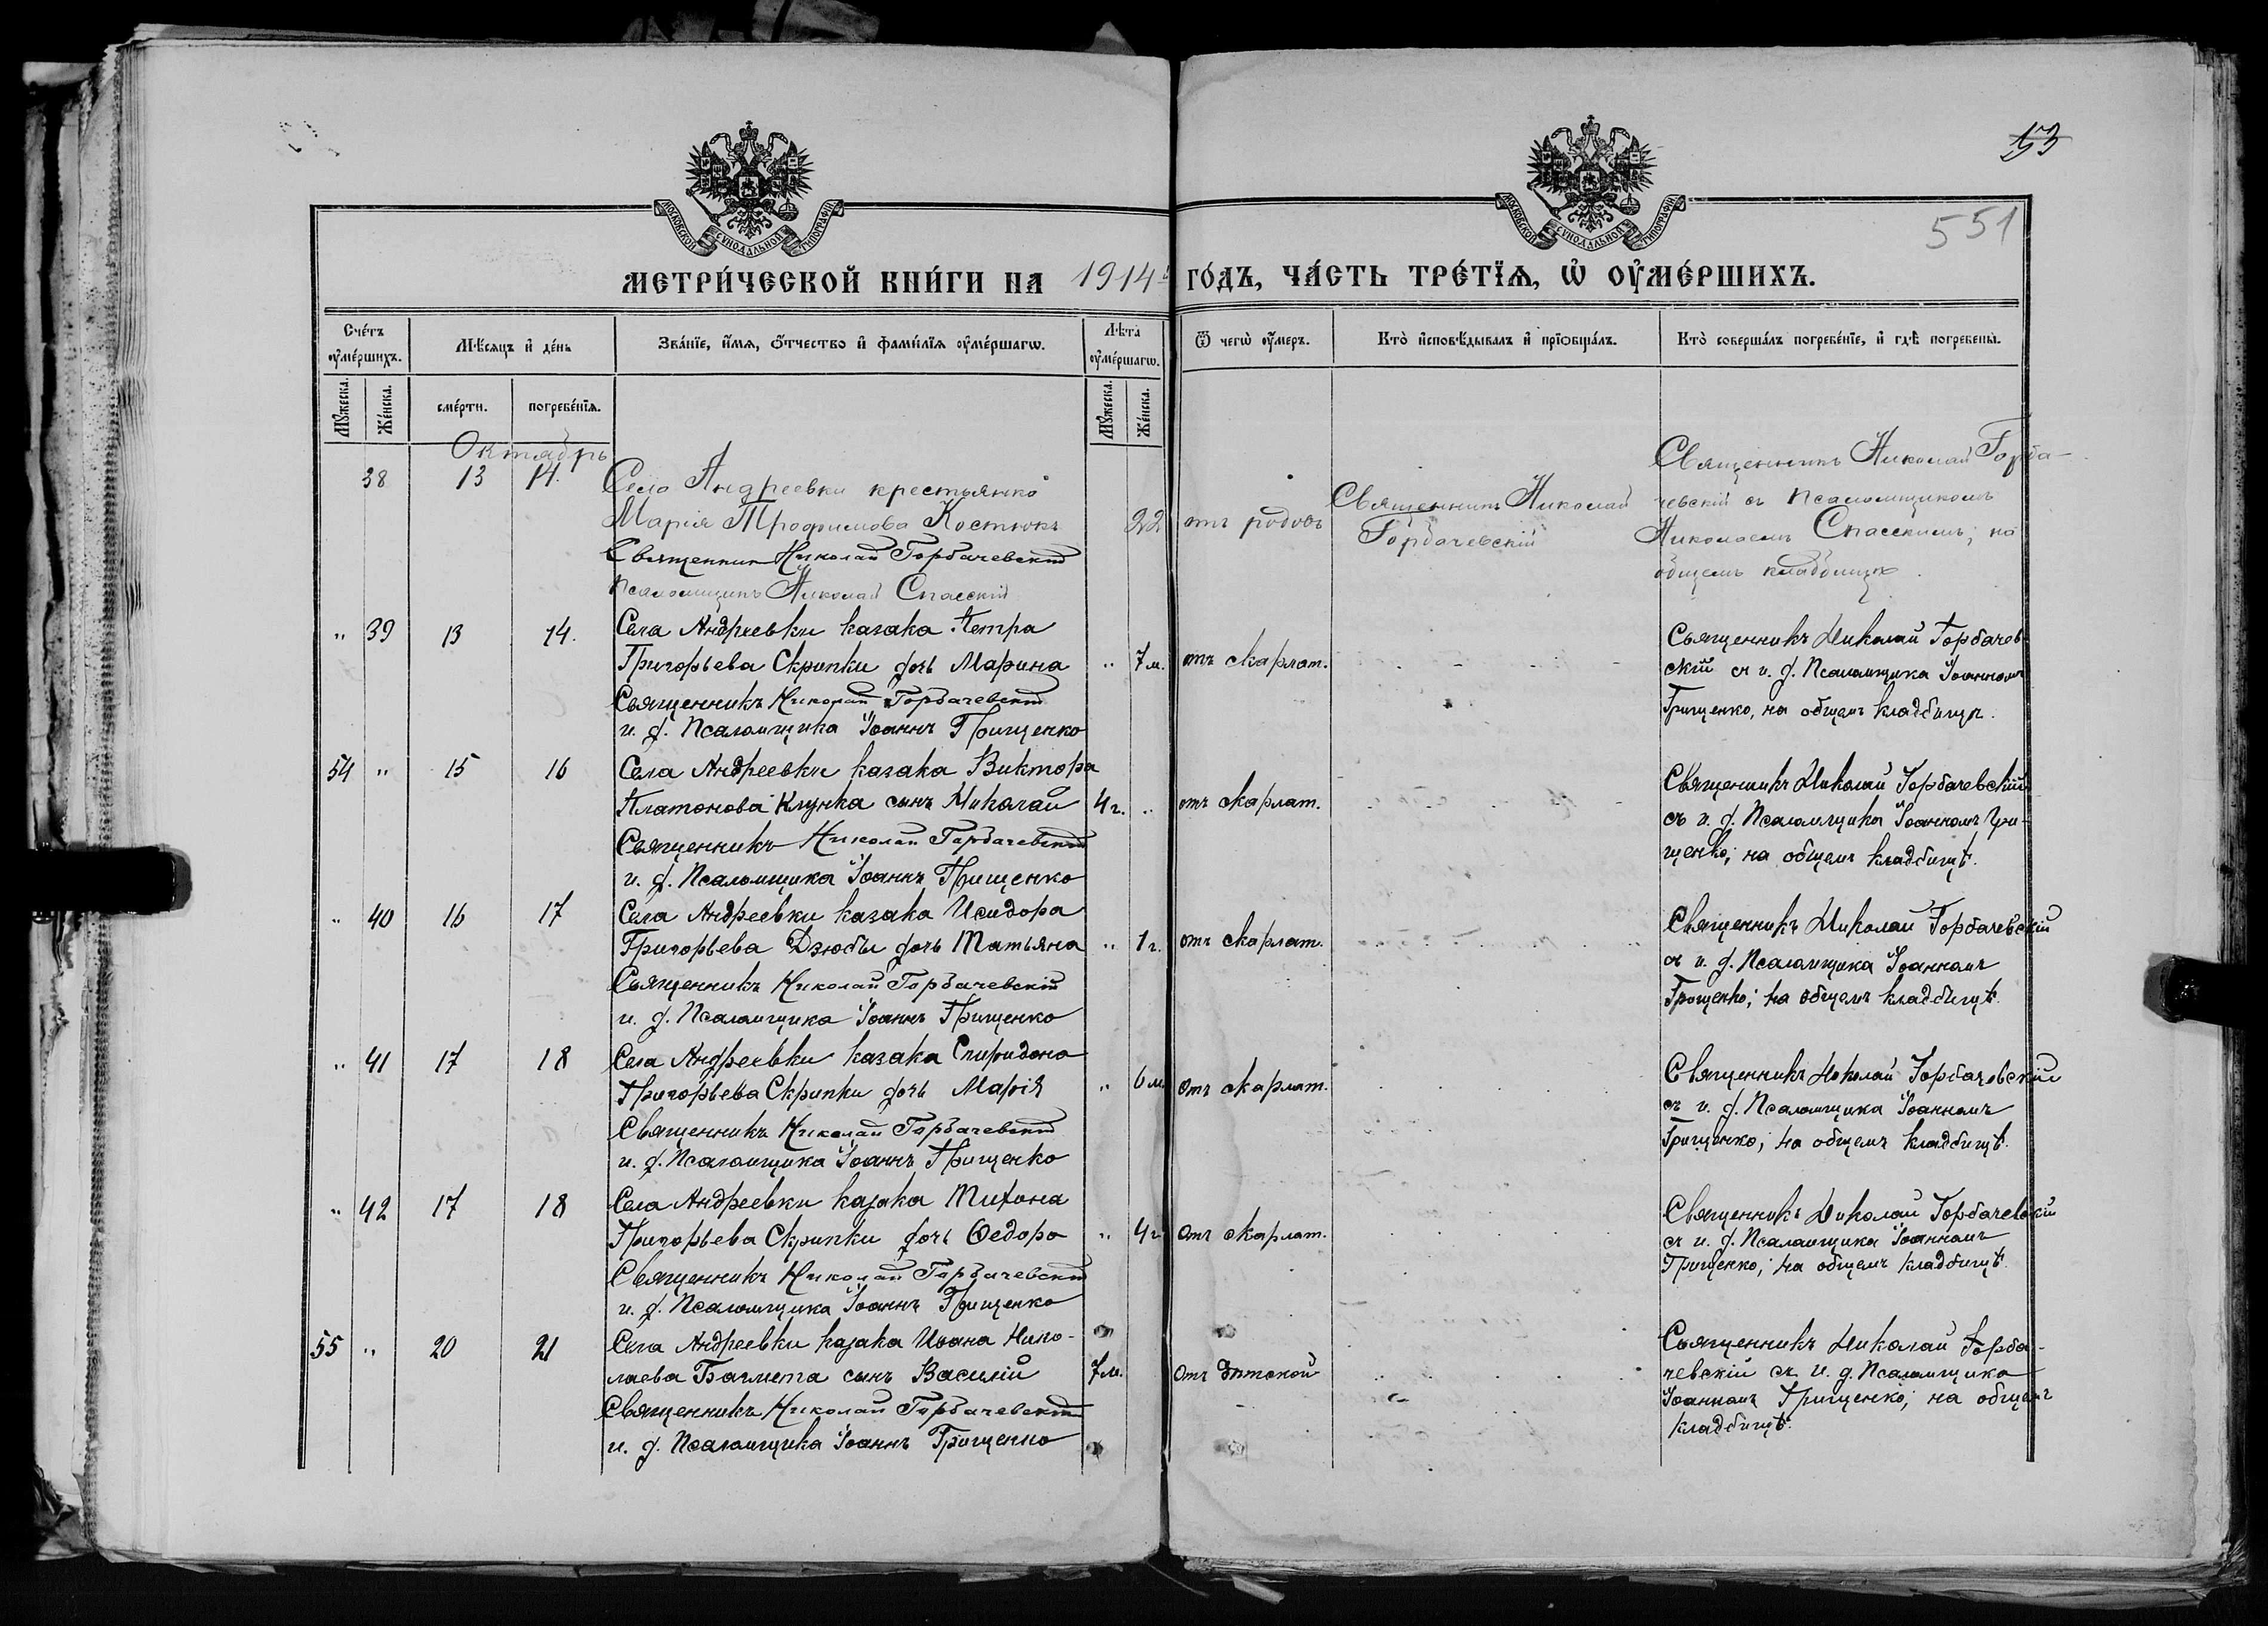 53
551
МОСКОВСКОЙ СѴНОДАЛЬНОЙ ТИПОГРАФІИ
МОСКОВСКОЙ СѴНОДАЛЬНОЙ ТИПОГРАФІИ
МЕТРИ́ЧЕСКОЙ КНИ́ГИ НА 1914 ГО́ДЪ, ЧА́СТЬ ТРЕ́ТЇѦ, Ѡ҆ ОУ҆МЕ́РШИХЪ.
Сче́тъ оу҆ме́ршихъ.
Мѣ́сяцъ и҆ де́нь
Зва́нїе, и҆́мѧ, ѻ҆́тчество и҆ фами́лїѧ оу҆ме́ршагѡ.
Лѣта̀ оу҆ме́ршагѡ.
Ѿ чегѡ̀ оу҆́меръ.
Кто̀ и҆сповѣ́дывалъ и҆ прїѡбща́лъ.
Кто̀ соверша́лъ погребе́нїе, и҆ гдѣ̀ погребены̀.
Мꙋ́жеска.
Же́нска.
сме́рти.
погребе́нїѧ.
Мꙋ́жеска.
Же́нска.
Октябрь
38 13 14. Села Андреевки крестьянка
Марія Трофимова Костюкъ 22 отъ родовъ
Священникъ Николай Горбачевскій
Псаломщикъ Николай Спасскій
Священникъ Николай
Горбачевскій
Священникъ Николай Горба-
чевскій съ псаломщикомъ
Николаемъ Спасскимъ; на
общемъ кладбищѣ.
" 39 13 14. Села Андреевки казака Петра
Григорьева Скрипки дочь Марина " 7 м. отъ скарлат.
Священникъ Николай Горбачевскій
и. д. Псаломщика Іоаннъ Грищенко
Священникъ Николай Горбачев-
скій съ и. д. Псаломщика Іоанномъ
Грищенко, на общемъ кладбищѣ.
54 " 15 16 Села Андреевки казака Виктора
Платонова Клунка сынъ Николай 4 г. " отъ скарлат.
Священникъ Николай Горбачевскій
и. д. Псаломщика Іоаннъ Грищенко
Священникъ Николай Горбачевскій
съ и. д. Псаломщика Іоанномъ Гри-
щенко; на общемъ кладбищѣ.
" 40 16 17 Села Андреевки казака Исидора
Григорьева Дзюбы дочь Татьяна " 1 г. отъ скарлат.
Священникъ Николай Горбачевскій
и. д. Псаломщика Іоаннъ Грищенко
Священникъ Николай Горбачевскій
съ и. д. Псаломщика Іоанномъ
Грищенко; на общемъ кладбищѣ.
" 41 17 18 Села Андреевки казака Спиридона
Григорьева Скрипки дочь Марія " 6 м. отъ скарлат.
Священникъ Николай Горбачевскій
и. д. Псаломщика Іоаннъ Грищенко
Священникъ Николай Горбачевскій
съ и. д. Псаломщика Іоанномъ
Грищенко; на общемъ кладбищѣ.
" 42 17 18 Села Андреевки казака Тихона
Григорьева Скрипки дочь Ѳедора " 4 г. отъ скарлат.
Священникъ Николай Горбачевскій
и. д. Псаломщика Іоаннъ Грищенко
Священникъ Николай Горбачевскій
съ и. д. Псаломщика Іоанномъ
Грищенко; на общемъ кладбищѣ.
55 " 20 21 Села Андреевки казака Ивана Нико-
лаева Багмета сынъ Василій 7 м. отъ дѣтской
Священникъ Николай Горбачевскій
и. д. Псаломщика Іоаннъ Грищенко
Священникъ Николай Горба-
чевскій съ и. д. Псаломщика
Іоанномъ Грищенко; на общемъ
кладбищѣ.